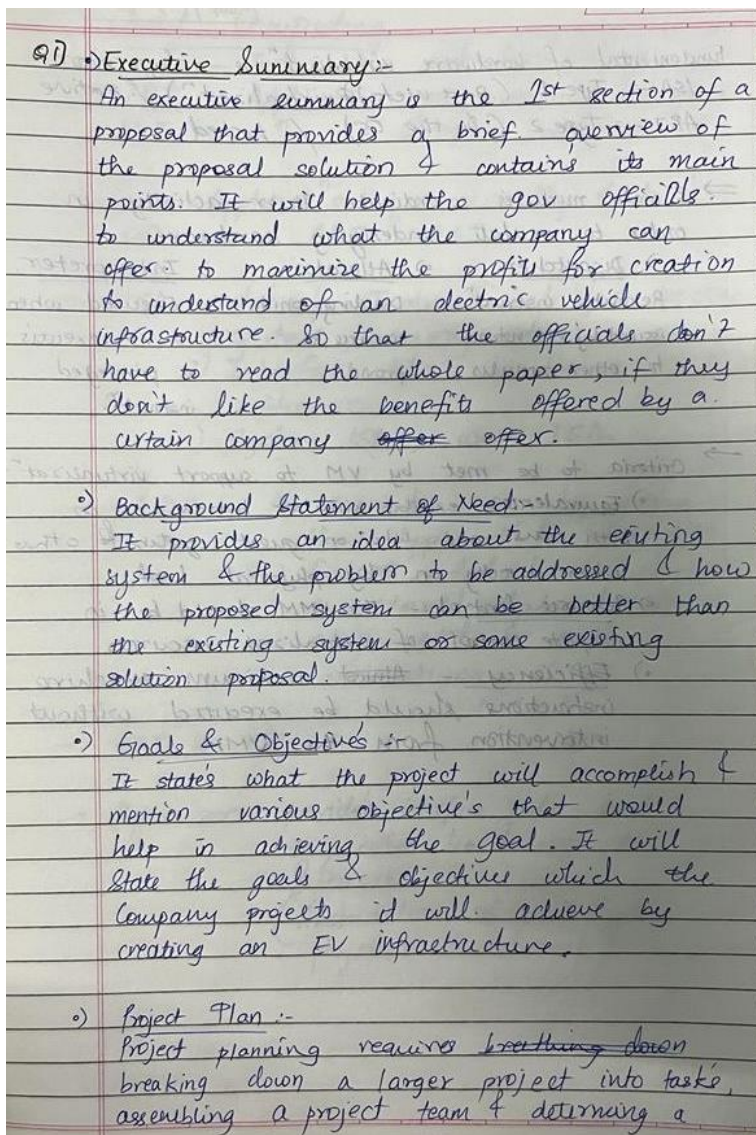 Q1) •) Executive Summary:-
An executive summary is the 1st section of a
proposal that provides a brief. overview of
the proposal solution & contains its main
points. It will help the gov officials.
to understand what the company can
offer. to maximize the profits for creation
to understand of an electric vehicle
infrastructure. So that the officials don't
have to read the whole paper, if they
don't like the benefits offered by a.
certain company offer offer.
•) Background Statement of Need:-
It provides an idea about the existing
system & the problem to be addressed & how
the proposed system can be better than
the existing system or some existing
solution proposal.
•) Goals & Objective's :-
It state's what the project will accomplish &
mention various objective's that would
help in achieving the goal. It will
State the goals & objectives which the
Company projects it will. achieve by
creating an EV infrastructure.
•) Project Plan :-
Project planning requires breathing down
breaking down a larger project into tasks,
assembling a project team & determing a